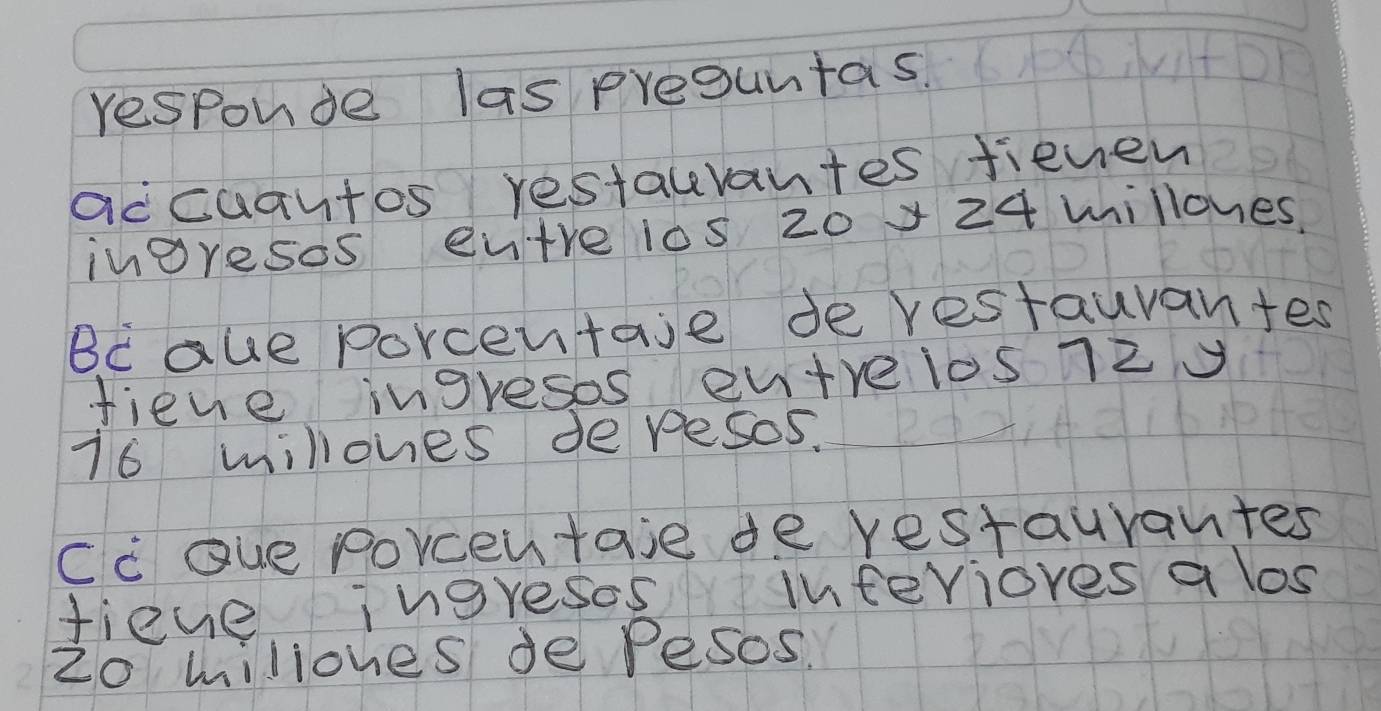 responde las preguntas.
a¿ cuantos restaurantes tienen
ingresos entre los 20 y 24 millones.
B¿ que porcentaje de restaurantes
tiene ingresos entre los 12 y
16 millones de pesos.
C¿ que porcentaje de restaurantes
tiene ingresos inferiores a los
20 millones de Pesos.